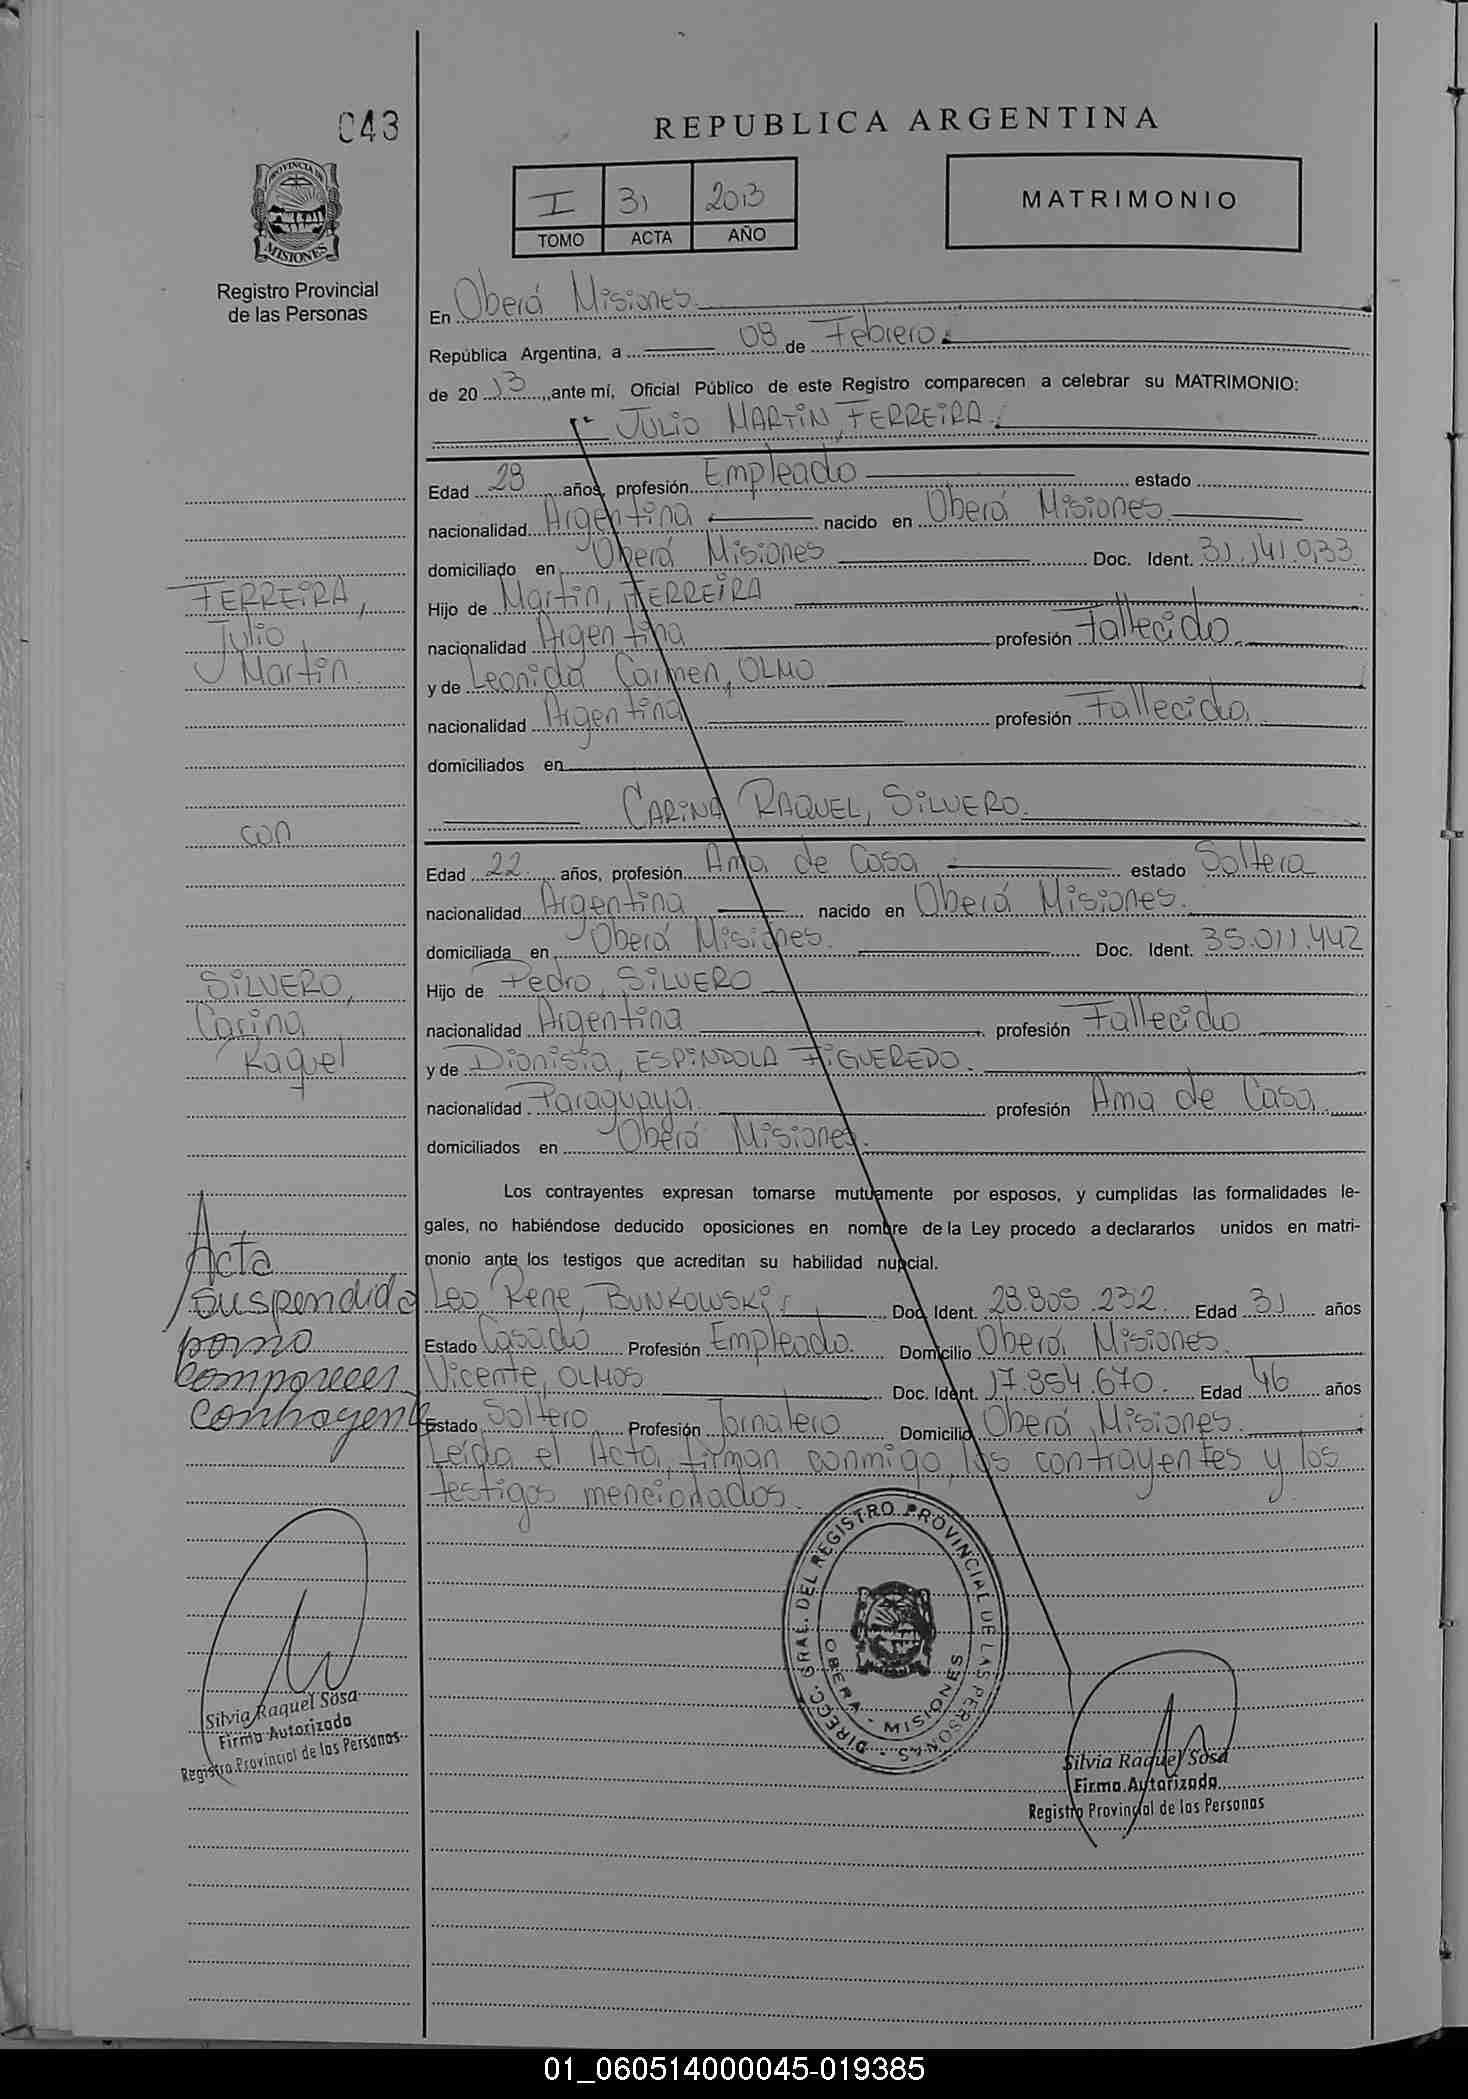 043
REPUBLICA ARGENTINA
PROVINCIA DE
MISIONES
Registro Provincial
de las Personas
I 31 2013
TOMO ACTA AÑO
MATRIMONIO
En Oberá Misiones
República Argentina, a 08 de Febrero
de 20 13, ante mí, Oficial Público de este Registro comparecen a celebrar su MATRIMONIO:
JULIO MARTIN, FERREIRA.
Edad 28 años, profesión Empleado estado
nacionalidad Argentina nacido en Oberá Misiones
domiciliado en Oberá Misiones Doc. Ident. 31.141.033
Hijo de Martin, FERREIRA
nacionalidad Argentina profesión Fallecido
y de Leonida Carmen, OLMO
nacionalidad Argentina profesión Fallecida
domiciliados en
FERREIRA,
Julio
Martin
con
SILVERO,
Carina
Raquel
CARINA RAQUEL, SILVERO.
Edad 22 años, profesión Ama de Casa estado Soltera
nacionalidad Argentina nacido en Oberá Misiones.
domiciliada en Oberá Misiones. Doc. Ident. 35.011.442
Hijo de Pedro, SILVERO
nacionalidad Argentina profesión Fallecido
y de Dionisia, ESPINDOLA FIGUEREDO.
nacionalidad Paraguaya profesión Ama de Casa.
domiciliados en Oberá Misiones.
Los contrayentes expresan tomarse mutuamente por esposos, y cumplidas las formalidades le-
gales, no habiéndose deducido oposiciones en nombre de la Ley procedo a declararlos unidos en matri-
monio ante los testigos que acreditan su habilidad nupcial.
Leo Rene, BUNKOWSKI Doc. Ident. 28.805.232. Edad 31 años
Estado Casado Profesión Empleado. Domicilio Oberá Misiones.
Vicente, OLMOS Doc. Ident. 17.854.670. Edad 46 años
Estado Soltero Profesión Jornalero Domicilio Oberá Misiones.
Leída el Acta, firman conmigo, los contrayentes y los
testigos mencionados.
Acta
suspendida
por no
comparecer
contrayente
DIRECC. GRAL. DEL REGISTRO PROVINCIAL DE LAS PERSONAS
OBERA - MISIONES
Silvia Raquel Sosa
Firma Autorizada
Registro Provincial de las Personas
Silvia Raquel Sosa
Firma Autorizada
Registro Provincial de las Personas
01_060514000045-019385